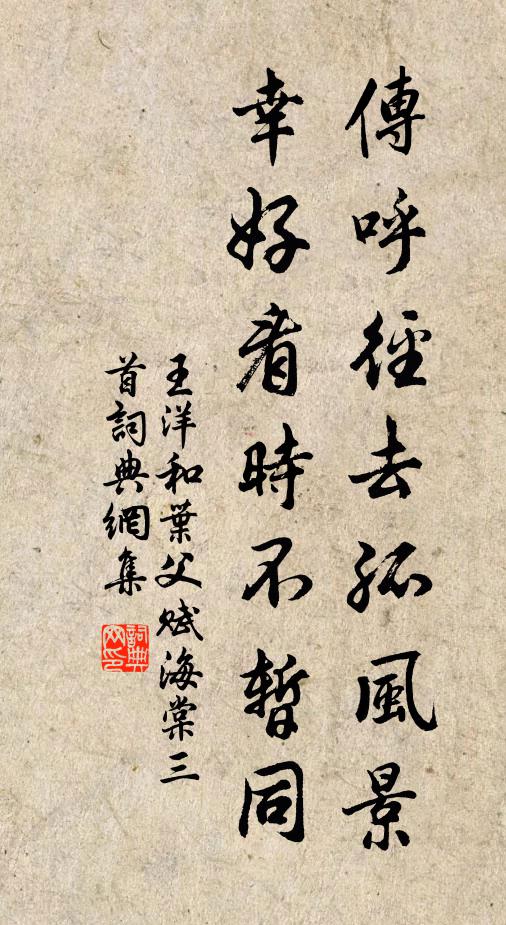 傳呼徑去孤風景
幸好看時不暫同
王洋和葉父賦海棠三
首詞典網集
詞典网印